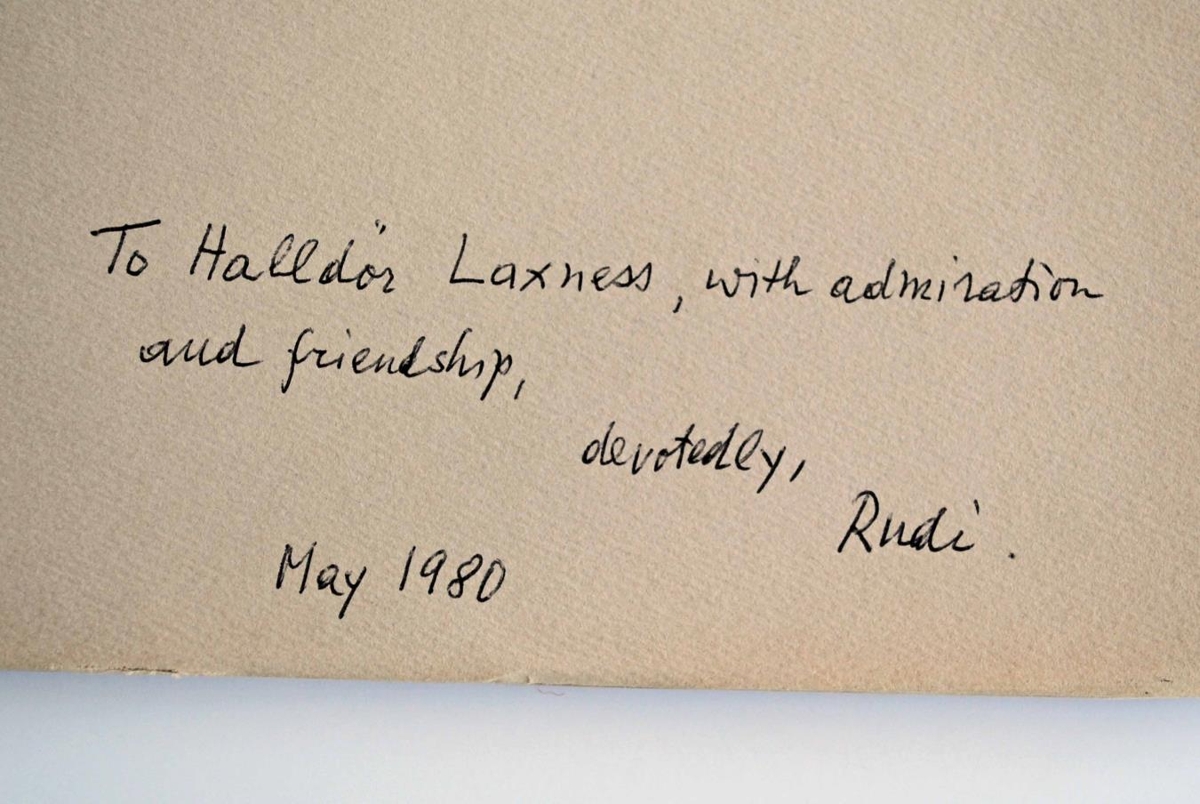 To Halldőr Laxness, with admiration
and friendship,
devotedly,
Rudi.
May 1980